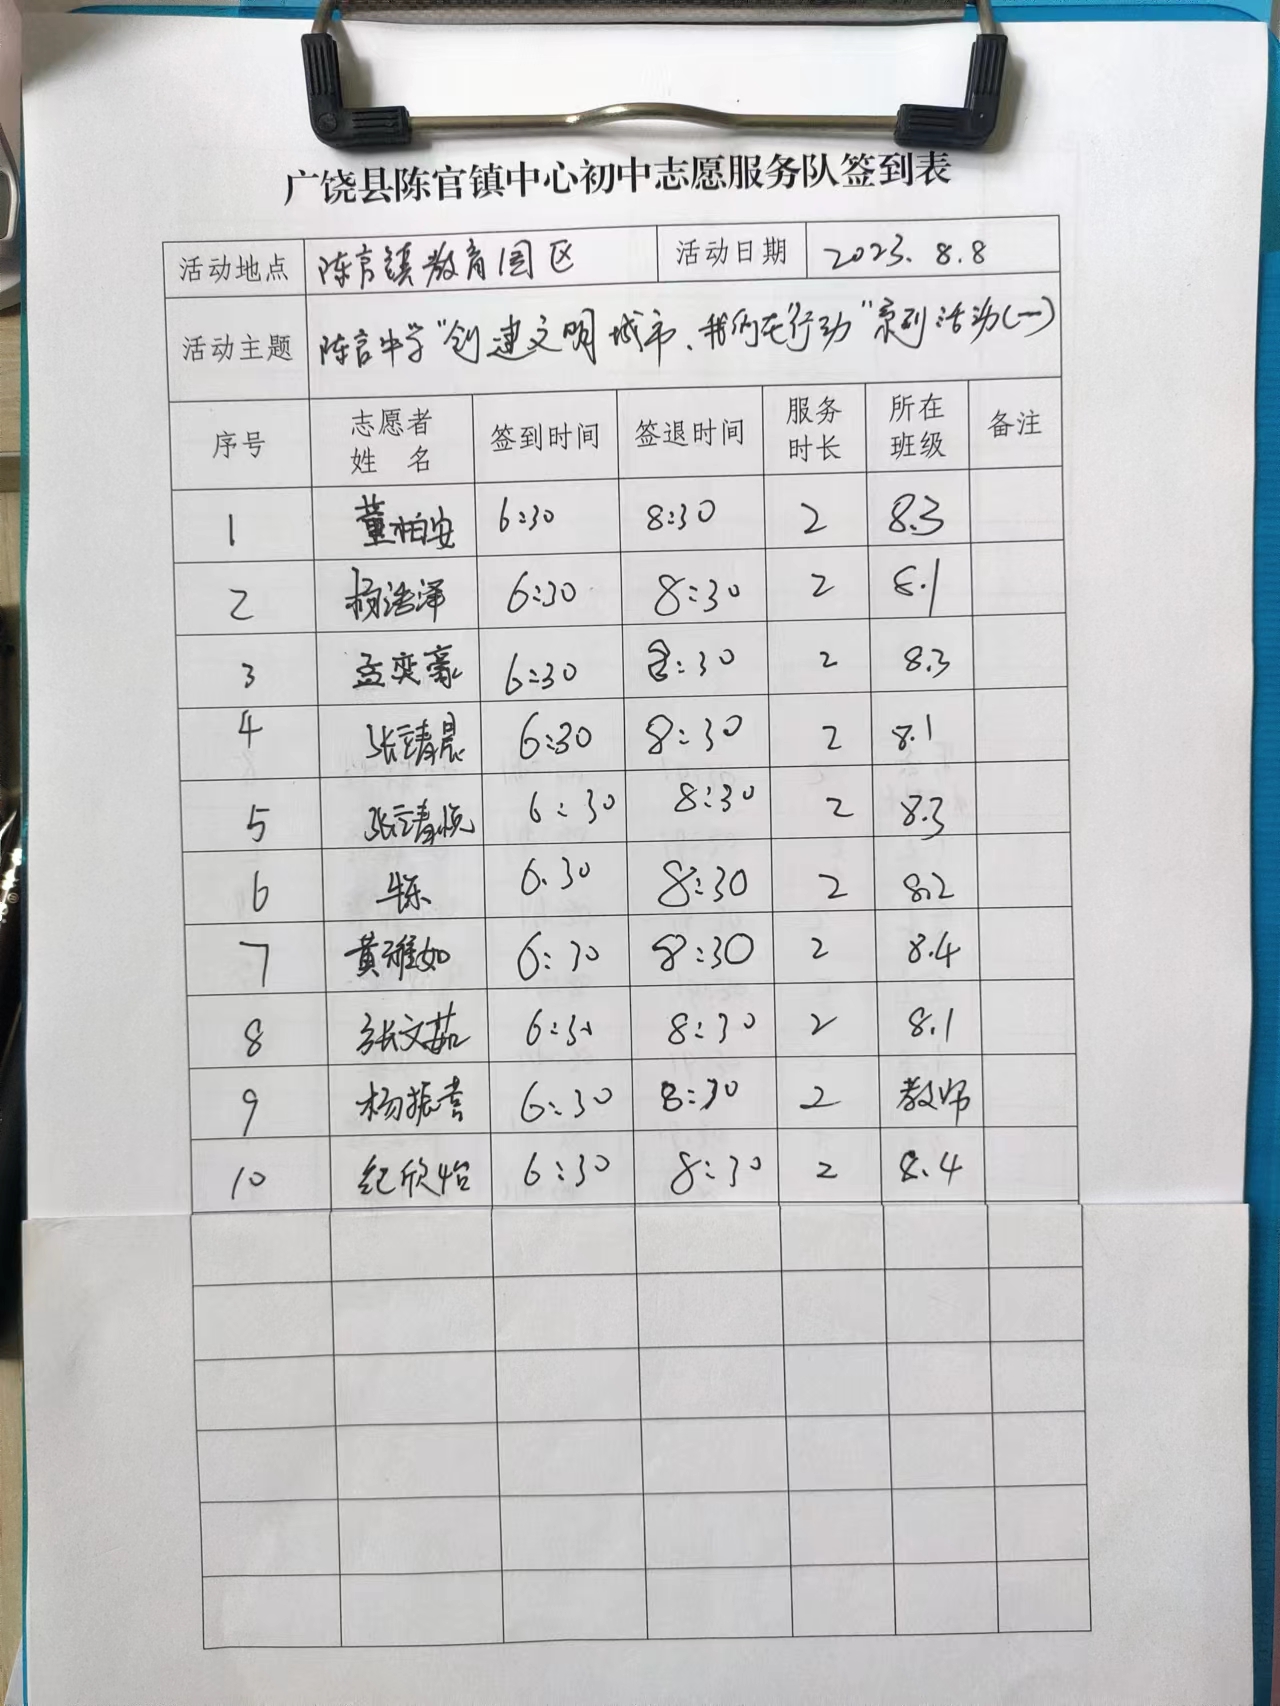 广饶县陈官镇中心初中志愿服务队签到表
活动地点 陈官镇教育园区 活动日期 2023.8.8
活动主题 陈官中学"创建文明城市、我们在行动"系列活动(一)
序号 志愿者姓名 签到时间 签退时间 服务时长 所在班级 备注
1 董柏安 6:30 8:30 2 8.3
2 杨浩泽 6:30 8:30 2 8.1
3 孟奕豪 6:30 8:30 2 8.3
4 张靖晨 6:30 8:30 2 8.1
5 张靖悦 6:30 8:30 2 8.3
6 6.30 8:30 2 8.2
7 黄雅如 6:30 8:30 2 8.4
8 张文茹 6:30 8:30 2 8.1
9 杨振喜 6:30 8:30 2 教师
10 纪欣怡 6:30 8:30 2 8.4